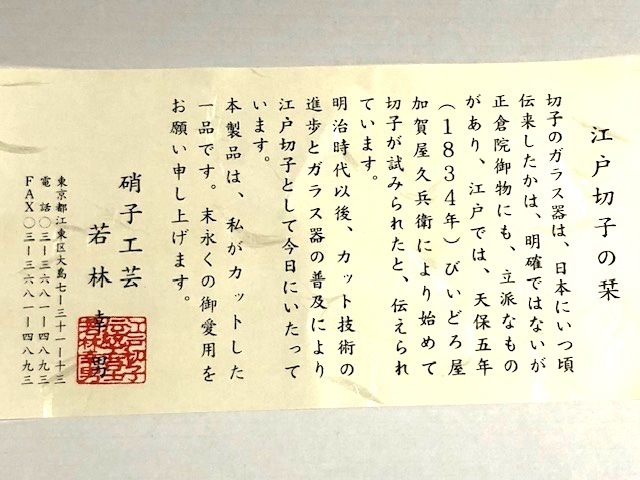 江戸切子の栞
切子のガラス器は、日本にいつ頃
伝来したかは、明確ではないが
正倉院御物にも、立派なもの
があり、江戸では、天保五年
(1834年)びいどろ屋
加賀屋久兵衛により始めて
切子が試みられたと、伝えられ
ています。
明治時代以後、カット技術の
進歩とガラス器の普及により
江戸切子として今日にいたって
います。
本製品は、私がカットした
一品です。末永くの御愛用を
お願い申し上げます。
硝子工芸
若林幸男
東京都江東区大島七ー三十一ー十三
電話〇三ー三六八一ー四八九三
FAX〇三ー三六八一ー四八九三
江戸切子
若林幸男